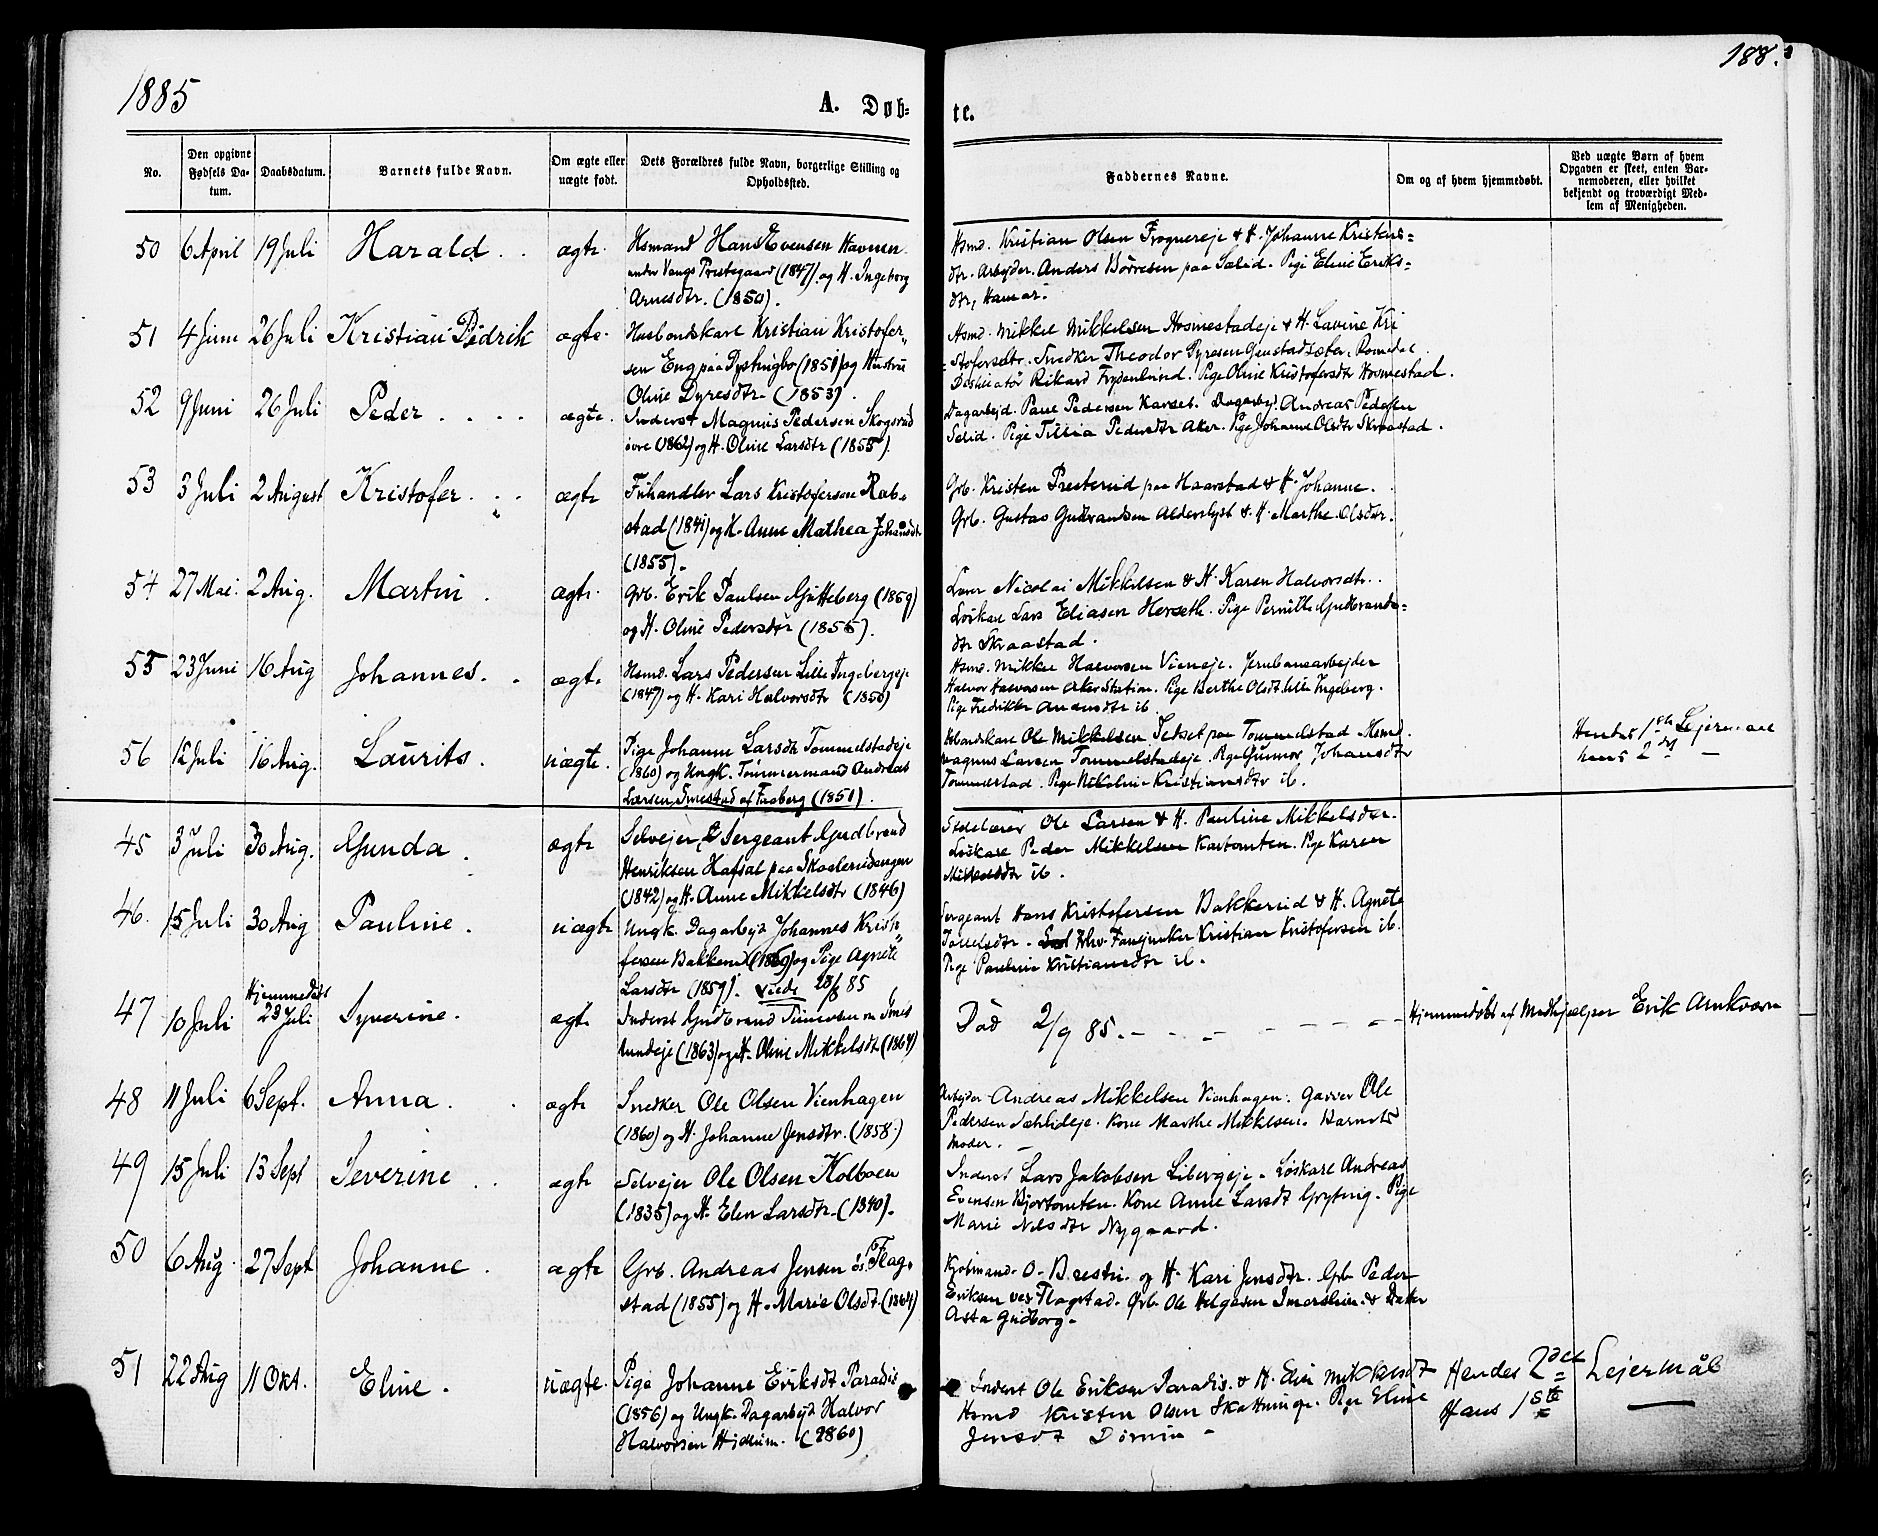 188.
1885
A. Døb-
te.
No.
Den opgivne Fødsels Datum.
Daabsdatum.
Barnets fulde Navn.
Om ægte eller uægte født.
Dets Forældres fulde Navn, borgerlige Stilling og Opholdssted.
Faddernes Navne.
Om og af hvem hjemmedøbt.
Ved uægte Børn af hvem Opgaven er skeet, enten Barnemoderen, eller hvilket bekjendt og troværdigt Medlem af Menigheden.
50 6 April 19 Juli Harald ægte.
Hsmand Hans Evensen Havnen
under Vangs Prestegaard (1847) og H. Ingeborg
Arnesdtr. (1850).
Hsmd. Kristian Olsen Frognereje & H. Johanne Kristens=
dtr. Arbejder Anders Börresen paa Sælid. Pige Eline Eriks=
dtr, Hamar.
51 4 Juni 26 Juli Kristian Pedrik ægte.
Husbondskarl Kristian Kristofer„
sen Eng paa Dystingbo (1851) og Hustru
Oline Dyresdtr (1853).
Hsmd. Mikkel Mikkelsen Hosmestadeje & H. Lavine Kri
=stofersdtr. Snedker Theodor Dyresen Romedal
Rikard Frydenlund. Pige Oline Kristofersdtr Hosmestad.
52 9 Juni 26 Juli Peder ægte.
Inderst Magnus Pedersen Skogsrud
övre (1862) og H. Oline Larsdtr (1855).
Dagarbejd. Paul Pedersen Karset. Dagarbejd. Andreas Pedersen
Sælid. Pige Tillia Pedersdtr Aker. Pige Johanne Olsdtr Skraastad.
53 3 Juli 2 August Kristofer ægte
Lars Kristofersen Rab=
stad (1841) og H. Anne Mathea Johansdtr
(1855).
Grb. Kristen Presterud paa Haarstad & H. Johanne.
Grb. Gustav Gudbrandsen Alderslyst & H. Marthe Olsdtr.
54 27 Mai. 2 Aug. Martin ægte.
Grb. Erik Paulsen Gjetteberg (1859)
og H. Oline Pedersdtr (1855).
Nicolai Mikkelsen & H. Karen Halvorsdtr.
Löskarl Lars Eliasen Herseth. Pige Pernille Gudbrands=
dtr Skraastad.
55 23 Juni 16 Aug Johannes. ægte.
Hsmd. Lars Pedersen Lille Ingebergeje
(1847) og H. Kari Halvorsdtr (1850)
Hsmd. Mikkel Halvorsen Vieneje. Jernbanearbejder
Halvor Halvorsen Aker Station. Pige Berthe Olsdt. Lille Ingeberg.
Pige Fredrikke Andersdtr ib
56 12 Juli 16 Aug. Laurits. uægte.
Pige Johanne Larsdtr Tommelstadeje
(1860) og Ungk. Tömmermand Andreas
Larsen Smestad af Faaberg (1851).
Hsbondskarl Ole Mikkelsen paa Tommelstad Hsmd.
Magnus Larsen Tommelstadeje. Pige Gunnor Johansdtr
Tommelstad. Pige Nikoline Kristiansdtr ib.
Hendes 1ste Lejermaal
hans 2 det —
45 3 Juli 30 Aug. Gunda ægte
Selvejer & Sergeant Gudbrand
Henriksen Hafsal paa Skaalerudengen
(1842) og H. Anne Mikkelsdtr (1846)
Ole Larsen & H. Pauline Mikkelsdtr.
Löskarl Peder Mikkelsen Kortomten. Pige Karen
Mikkelsdtr ib.
46. 15 Juli 30 Aug Pauline. uægte
Ungk. Dagarbejd Johannes Kristo„
fersen Bakkerud (1859) og Pige Agnete
Larsdtr (1859). viede 28/8 85
Sergeant Hans Kristofersen Bakkerud & H. Agnete
Tollefsdtr. Fanejunker Kristian Kristofersen ib.
Pige Pauline Kristiansdtr ib.
47 10 Juli Hjemmedöbt 23 Juli Syverine. ægte.
Inderst Gudbrand Simensen
lundeje (1863) og H. Oline Mikkelsdtr (1864)
Död 2/9 85.
Hjemmedöbt af Medhjælper Erik Arnkværn
48 11 Juli 6 Sept. Anna. ægte
Snedker Ole Olsen Vienhagen
(1860) og H. Johanne Jensdtr. (1858.)
Arbejder Andreas Mikkelsen Vienhagen. Garver Ole
Pedersen Sælideje. Kone Marthe Mikkelsen. Barnets
Moder.
49 15 Juli 13 Sept Severine ægte
Selvejer Ole Olsen Kolboen
(1835) og H. Elen Larsdtr. (1840).
Inderst Lars Jakobsen Libergeje. Löskarl Andreas
Evensen Bjortomten. Kone Anne Larsdt Gryting. Pige
Marie Nilsdtr Nygaard.
50 6 Aug. 27 Sept Johanne. ægte
Grb. Andreas Jensen ö. Flag=
stad (1855) og H. Marie Olsdtr. (1864)
Kjöbmand O. Brestu. og H. Kari Jensdtr. Grb Peder
Eriksen ves Flagstad. Grb. Ole Helgesen Imerslun. & Datter
Asta Gudborg.
51 22 Aug 11 Okt. Eline. uægte.
Pige Johanne Eriksdt Paradis
(1856) og Ungk. Dagarbejd Halvor
Halvorsen Hjellum. (1860)
Inderst Ole Eriksen Paradis. & H. Eli Mikkelsdt
Hsmd Kristen Olsen Skattumeje. Pige Eline
Jensdt
Hendes 2det Lejermål
Hans 1ste —